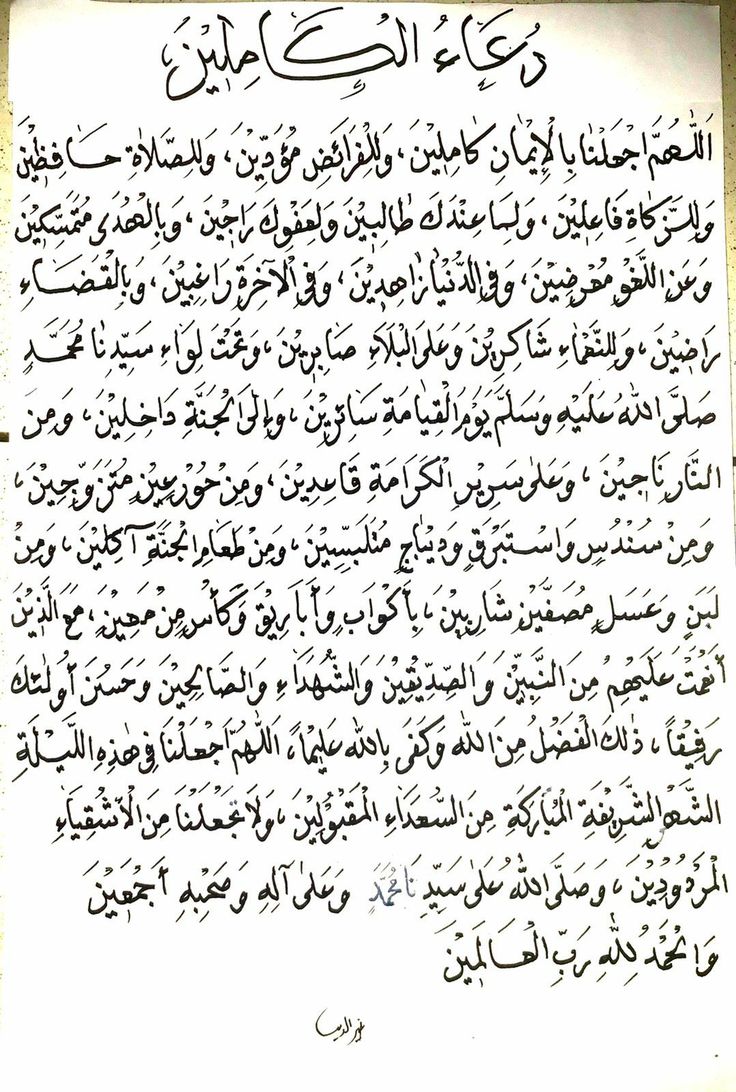 دُعَاءُ الْكَامِلِيْنَ
اَللّٰهُمَّ اجْعَلْنَا بِالْإِيْمَانِ كَامِلِيْنَ، وَلِلْفَرَائِضِ مُؤَدِّيْنَ، وَلِلصَّلَاةِ حَافِظِيْنَ
وَلِلزَّكَاةِ فَاعِلِيْنَ، وَلِمَا عِنْدَكَ طَالِبِيْنَ وَلِعَفْوِكَ رَاجِيْنَ، وَبِالْهُدَى مُتَمَسِّكِيْنَ
وَعَنِ اللَّغْوِ مُعْرِضِيْنَ، وَفِي الدُّنْيَا زَاهِدِيْنَ، وَفِي الْآخِرَةِ رَاغِبِيْنَ، وَبِالْقَضَاءِ
رَاضِيْنَ، وَلِلنَّعْمَاءِ شَاكِرِيْنَ وَعَلَى الْبَلَاءِ صَابِرِيْنَ، وَتَحْتَ لِوَاءِ سَيِّدِنَا مُحَمَّدٍ
صَلَّى اللهُ عَلَيْهِ وَسَلَّمَ يَوْمَ الْقِيَامَةِ سَائِرِيْنَ، وَإِلَى الْجَنَّةِ دَاخِلِيْنَ، وَمِنَ
النَّارِ نَاجِيْنَ، وَعَلَى سَرِيْرِ الْكَرَامَةِ قَاعِدِيْنَ، وَمِنْ حُوْرٍ عِيْنٍ مُتَزَوِّجِيْنَ،
وَمِنْ سُنْدُسٍ وَاسْتَبْرَقٍ وَدِيْبَاجٍ مُتَلَبِّسِيْنَ، وَمِنْ طَعَامِ الْجَنَّةِ آكِلِيْنَ، وَمِنْ
لَبَنٍ وَعَسَلٍ مُصَفَّيْنِ شَارِبِيْنَ، بِأَكْوَابٍ وَأَبَارِيْقَ وَكَأْسٍ مِنْ مَعِيْنٍ، مَعَ الَّذِيْنَ
أَنْعَمْتَ عَلَيْهِمْ مِنَ النَّبِيِّيْنَ وَالصِّدِّيْقِيْنَ وَالشُّهَدَاءِ وَالصَّالِحِيْنَ وَحَسُنَ أُولٰئِكَ
رَفِيْقًا، ذٰلِكَ الْفَضْلُ مِنَ اللهِ وَكَفَى بِاللهِ عَلِيْمًا، اَللّٰهُمَّ اجْعَلْنَا فِي هٰذِهِ اللَّيْلَةِ
الشَّهْرِ الشَّرِيْفَةِ الْمُبَارَكَةِ مِنَ السُّعَدَاءِ الْمَقْبُوْلِيْنَ، وَلَا تَجْعَلْنَا مِنَ الْأَشْقِيَاءِ
الْمَرْدُوْدِيْنَ، وَصَلَّى اللهُ عَلَى سَيِّدِنَا مُحَمَّدٍ وَعَلَى آلِهِ وَصَحْبِهِ أَجْمَعِيْنَ
وَالْحَمْدُ لِلّٰهِ رَبِّ الْعَالَمِيْنَ